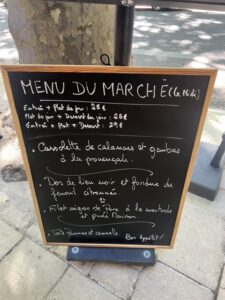 MENU DU MARCHÉ (Le Midi)
Entrée + Plat du jour : 25€
Plat du jour + Dessert du jour : 25€
Entrée + Plat + Dessert : 29€
. Cassolette de calamars et gambas
à la provençale.
. Dos de lieu noir et fondue de
fenouil citronnée
ou
. Filet mignon de Porc à la moutarde
et purée Maison
. et cannelle.
Bon Appétit !